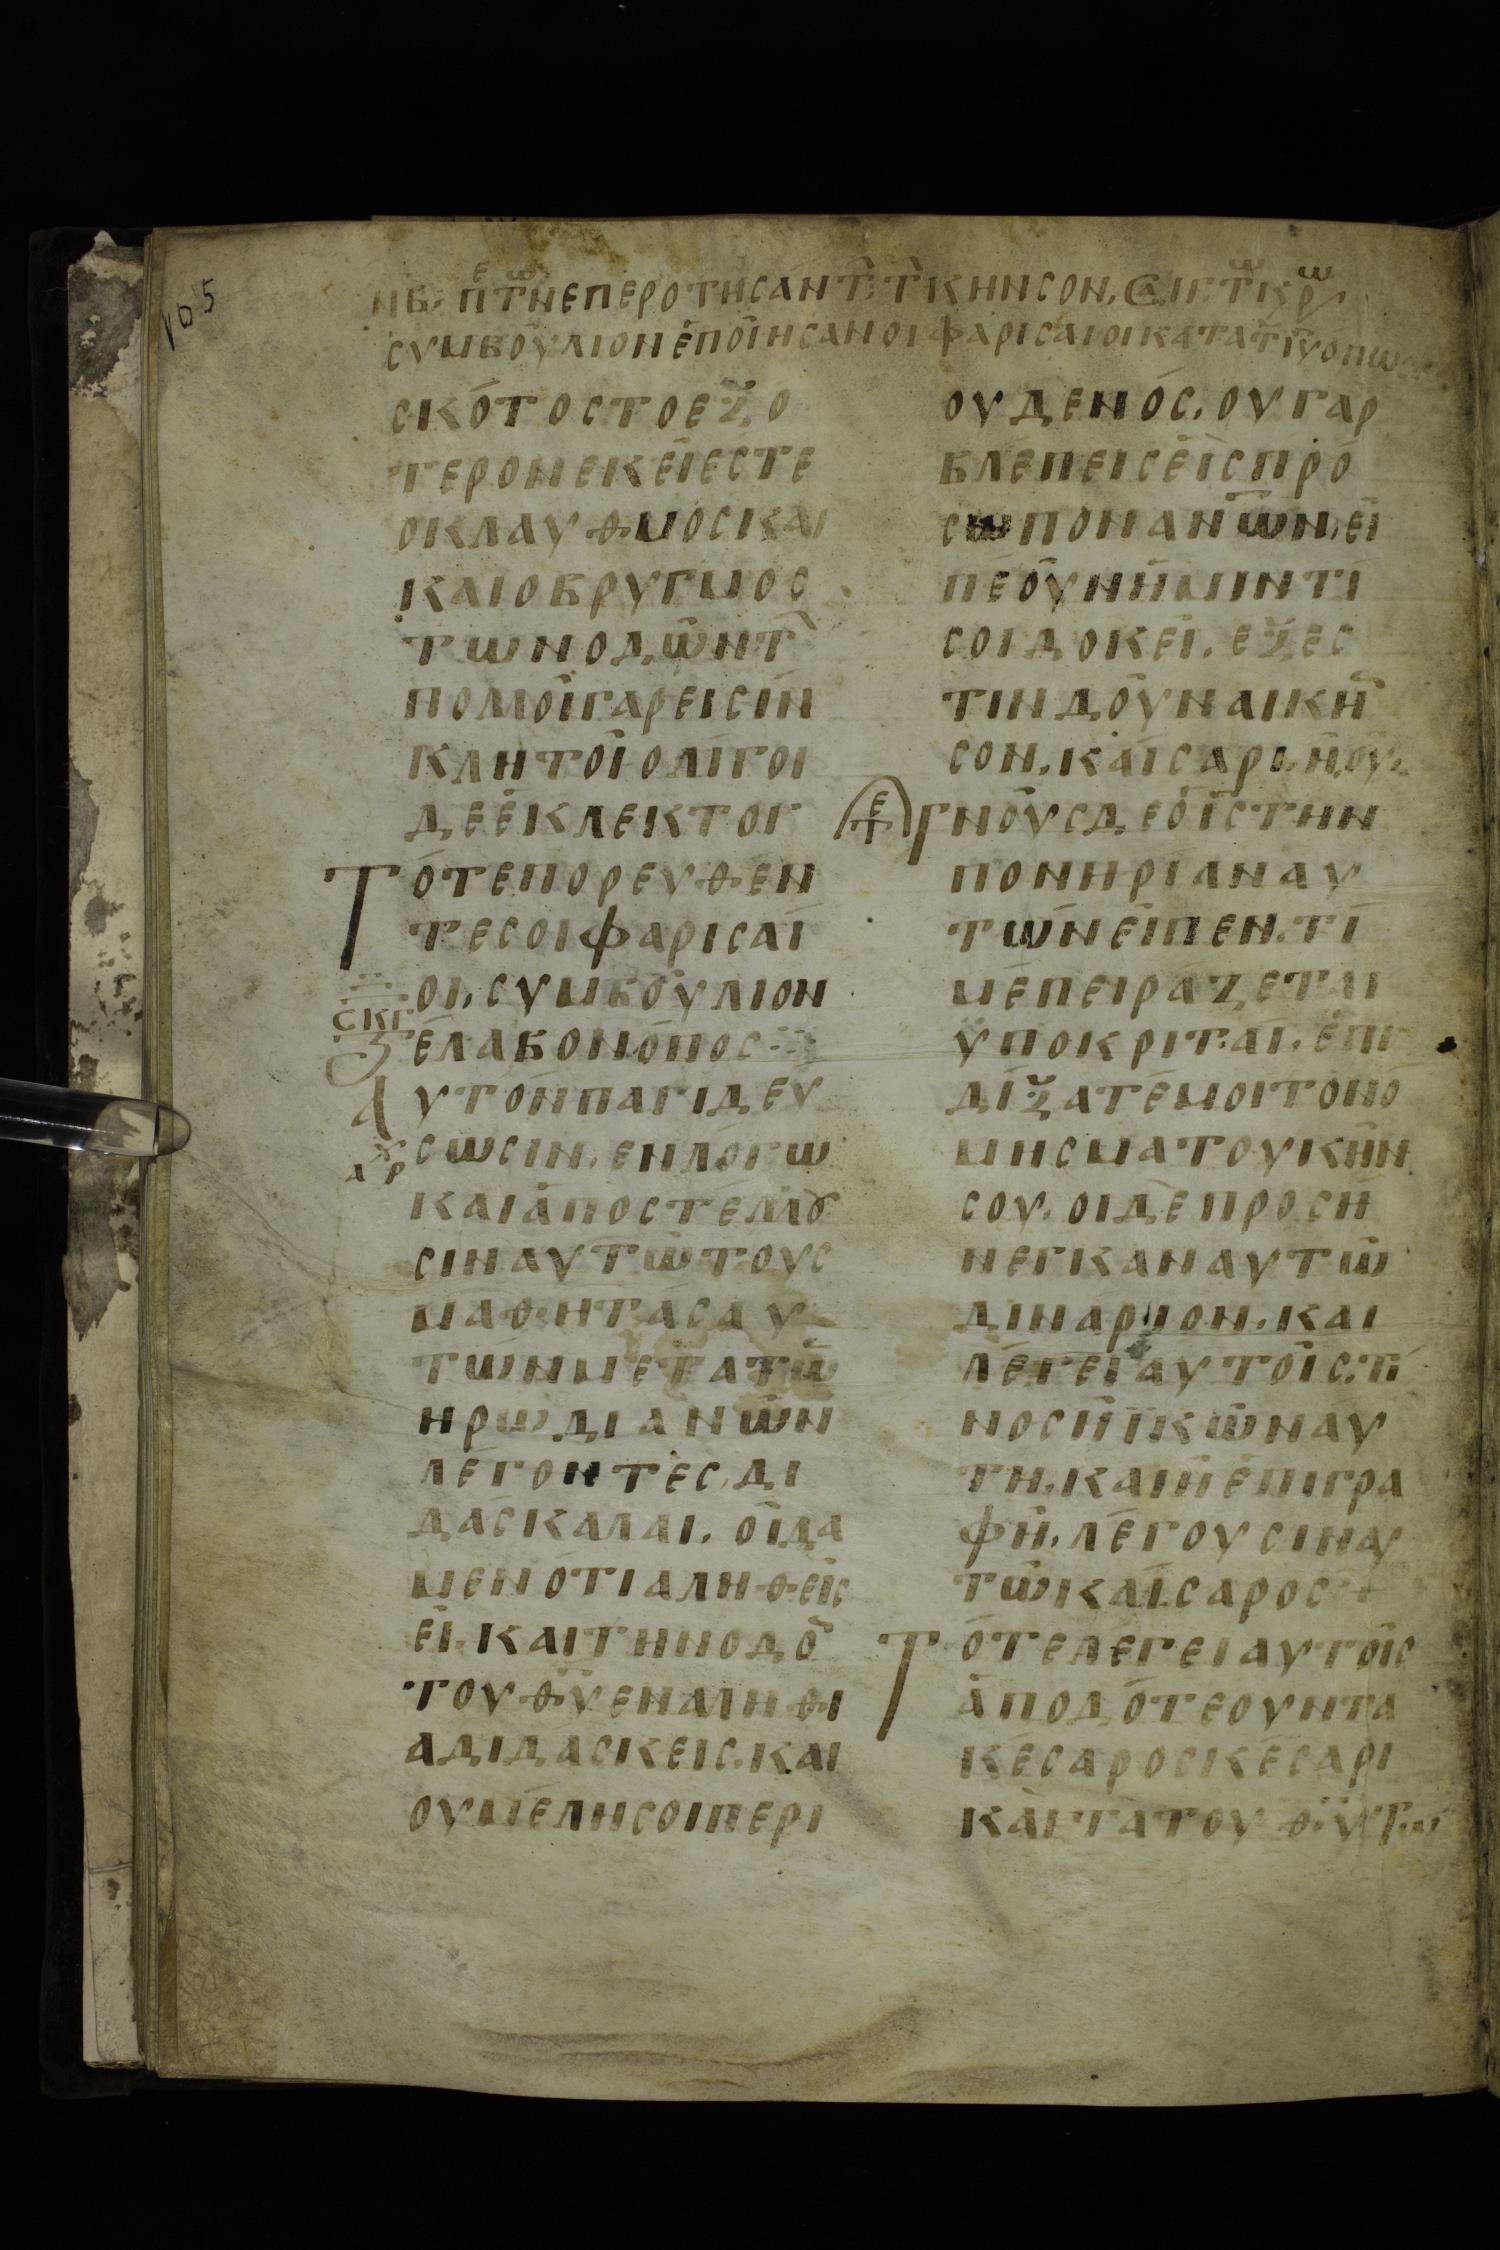 ΝΒ· ΠΕ ΤΩ͂Ν ΕΠΕΡΟΤΗΣΑΝΤ̀· Τ̀ ΚΗΝΣΟΝ·
ΣΥΜΒΟΥΛΙΟΝ ΕΠΟΙΗΣΑΝ ΟΙ ΦΑΡΙΣΑΙΟΙ ΚΑΤΑ Τ ΙΥ ΟΠΩΣ
ΣΚΟΤΟΣ ΤΟ ΕΞΟ
ΤΕΡΟΝ ΕΚΕΙ ΕΣΤΕ
Ο ΚΛΑΥΘΜΟΣ ΚΑΙ
ΚΑΙ Ο ΒΡΥΓΜΟΣ
ΤΩΝ ΟΔΩΝΤ̀
ΠΟΛΛΟΙ ΓΑΡ ΕΙΣΙΝ
ΚΛΗΤΟΙ ΟΛΙΓΟΙ
ΔΕ ΕΚΛΕΚΤΟΙ
ΤΟΤΕ ΠΟΡΕΥΘΕΝ
ΤΕΣ ΟΙ ΦΑΡΙΣΑΙ
ΟΙ, ΣΥΜΒΟΥΛΙΟΝ
ΣΚΓ
ΕΛΑΒΟΝ ΟΠΟΣ
ΑΥΤΟΝ ΠΑΓΙΔΕΥ
ΑΡΧ
ΣΩΣΙΝ, ΕΝ ΛΟΓΩ
ΚΑΙ ΑΠΟΣΤΕΛΛΟΥ
ΣΙΝ ΑΥΤΩ ΤΟΥΣ
ΜΑΘΗΤΑΣ ΑΥ
ΤΩΝ ΜΕΤΑ ΤΩ̄
ΗΡΩΔΙΑΝΩΝ
ΛΕΓΟΝΤΕΣ, ΔΙ
ΔΑΣΚΑΛΑΙ, ΟΙΔΑ
ΜΕΝ ΟΤΙ ΑΛΗΘΕΙΣ
ΕΙ, ΚΑΙ ΤΗΝ ΟΔΟ̄
ΤΟΥ ΘΥ ΕΝ ΑΛΗΘΙ
Α ΔΙΔΑΣΚΕΙΣ, ΚΑΙ
ΟΥ ΜΕΛΗ ΣΟΙ ΠΕΡΙ
ΟΥΔΕΝΟΣ, ΟΥ ΓΑΡ
ΒΛΕΠΕΙΣ ΕΙΣ ΠΡΟ
ΣΩΠΟΝ ΑΝΩΝ, ΕΙ
ΠΕ ΟΥΝ ΗΜΙΝ ΤΙ
ΣΟΙ ΔΟΚΕΙ, ΕΞΕΣ
ΤΙΝ ΔΟΥΝΑΙ ΚΗ̄
ΣΟΝ, ΚΑΙΣΑΡΙ, Η ΟΥ,
ΓΝΟΥΣ ΔΕ Ο ΙΣ ΤΗΝ
ΠΟΝΗΡΙΑΝ ΑΥ
ΤΩΝ ΕΙΠΕΝ, ΤΙ
ΜΕ ΠΕΙΡΑΖΕΤΑΙ
ΥΠΟΚΡΙΤΑΙ, ΕΠΙ
ΔΙΞΑΤΕ ΜΟΙ ΤΟ ΝΟ
ΜΗΣΜΑ ΤΟΥ ΚΗΝ
ΣΟΥ, ΟΙ ΔΕ ΠΡΟΣΗ
ΝΕΓΚΑΝ ΑΥΤΩ
ΔΙΝΑΡΙΟΝ, ΚΑΙ
ΛΕΓΕΙ ΑΥΤΟΙΣ, ΤΙ
ΝΟΣ Η ΙΚΩΝ ΑΥ
ΤΗ, ΚΑΙ Η ΕΠΙΓΡΑ
ΦΗ, ΛΕΓΟΥΣΙΝ ΑΥ
ΤΩ ΚΑΙΣΑΡΟΣ +
ΤΟΤΕ ΛΕΓΕΙ ΑΥΤΟΙΣ
ΑΠΟΔΟΤΕ ΟΥΝ ΤΑ
ΚΕΣΑΡΟΣ ΚΕΣΑΡΙ
ΚΑΙ ΤΑ ΤΟΥ ΘΥ ΤΩ
165